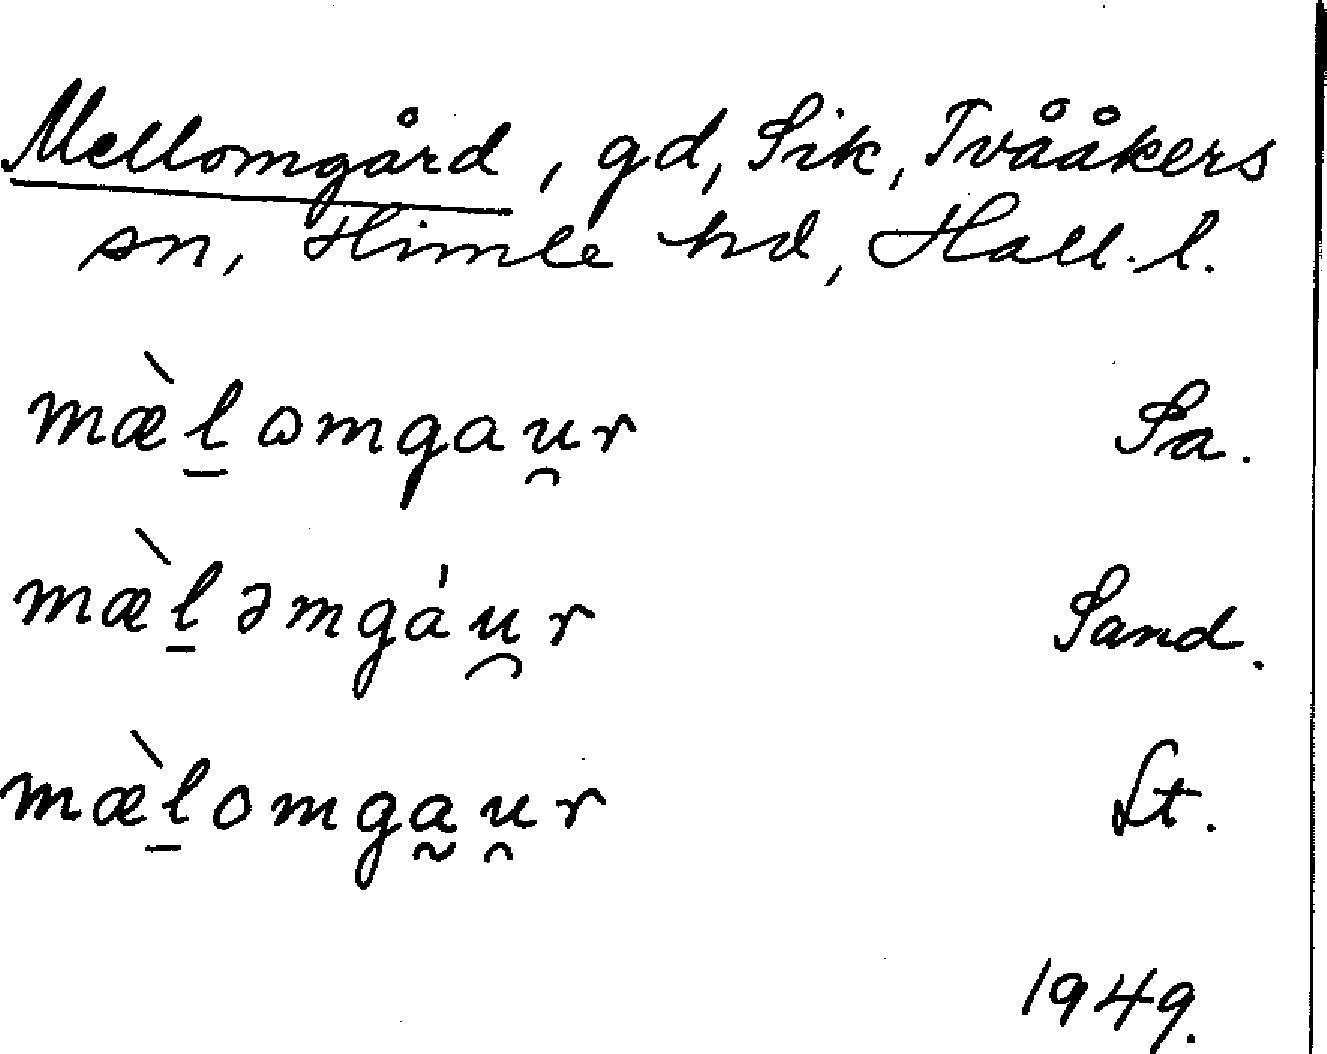 Mellomgård, gd, Sik, Tvååkers
sn, Himle hd, Hall. l.
mæ̀l̠ɷmgau̯r Sa.
mæ̀l̠əmgáu̯r Sand.
mæ̀l̠omga̰u̯r St.
1949.